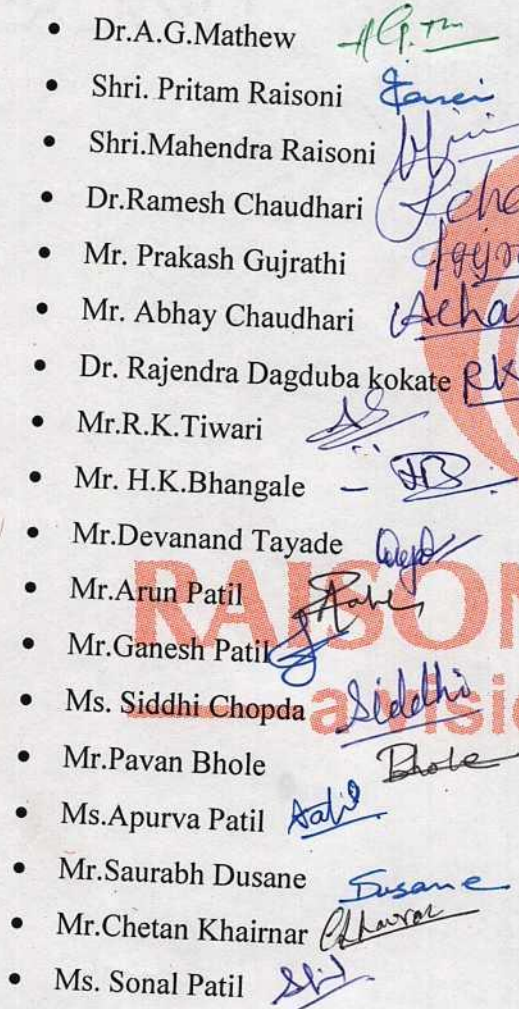 • Dr.A.G.Mathew
• Shri. Pritam Raisoni
• Shri.Mahendra Raisoni
• Dr.Ramesh Chaudhari
• Mr. Prakash Gujrathi
• Mr. Abhay Chaudhari
• Dr. Rajendra Dagduba kokate RK
• Mr.R.K.Tiwari
• Mr. H.K.Bhangale – HB
• Mr.Devanand Tayade
• Mr.Arun Patil
RAISON
• Mr.Ganesh Patil
• Ms. Siddhi Chopda Siddhi
a visio
• Mr.Pavan Bhole Bhole
• Ms.Apurva Patil
• Mr.Saurabh Dusane Dusane
• Mr.Chetan Khairnar
• Ms. Sonal Patil